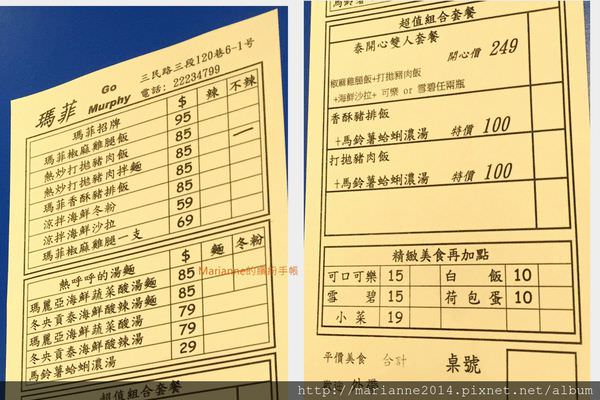 瑪菲 Go Murphy
三民路三段120巷6-1号
電話: 22234799
瑪菲招牌 $ 辣 不辣
瑪菲椒麻雞腿飯 95
熱炒打拋豬肉飯 85
熱炒打拋豬肉拌麵 85
瑪菲香酥豬排飯 85
涼拌海鮮冬粉 85
涼拌海鮮沙拉 59
瑪菲椒麻雞腿一支 69
熱呼呼的湯麵 $ 麵 冬粉
瑪麗亞海鮮蔬菜酸湯麵 85
冬央貢泰海鮮酸辣湯麵 85
瑪麗亞海鮮蔬菜酸湯 79
冬央貢泰海鮮酸辣湯 79
馬鈴薯蛤蜊濃湯 29
超值組合套餐
Marianne的繽紛手帳
超值組合套餐
泰開心雙人套餐
開心價 249
椒麻雞腿飯+打拋豬肉飯
+海鮮沙拉+ 可樂 or 雪碧任兩瓶
香酥豬排飯
+馬鈴薯蛤蜊濃湯 特價 100
打拋豬肉飯
+馬鈴薯蛤蜊濃湯 特價 100
精緻美食再加點
可口可樂 15 白飯 10
雪碧 15 荷包蛋 10
小菜 19
平價美食 合計 桌號
http://marianne2014.pixnet.net/album